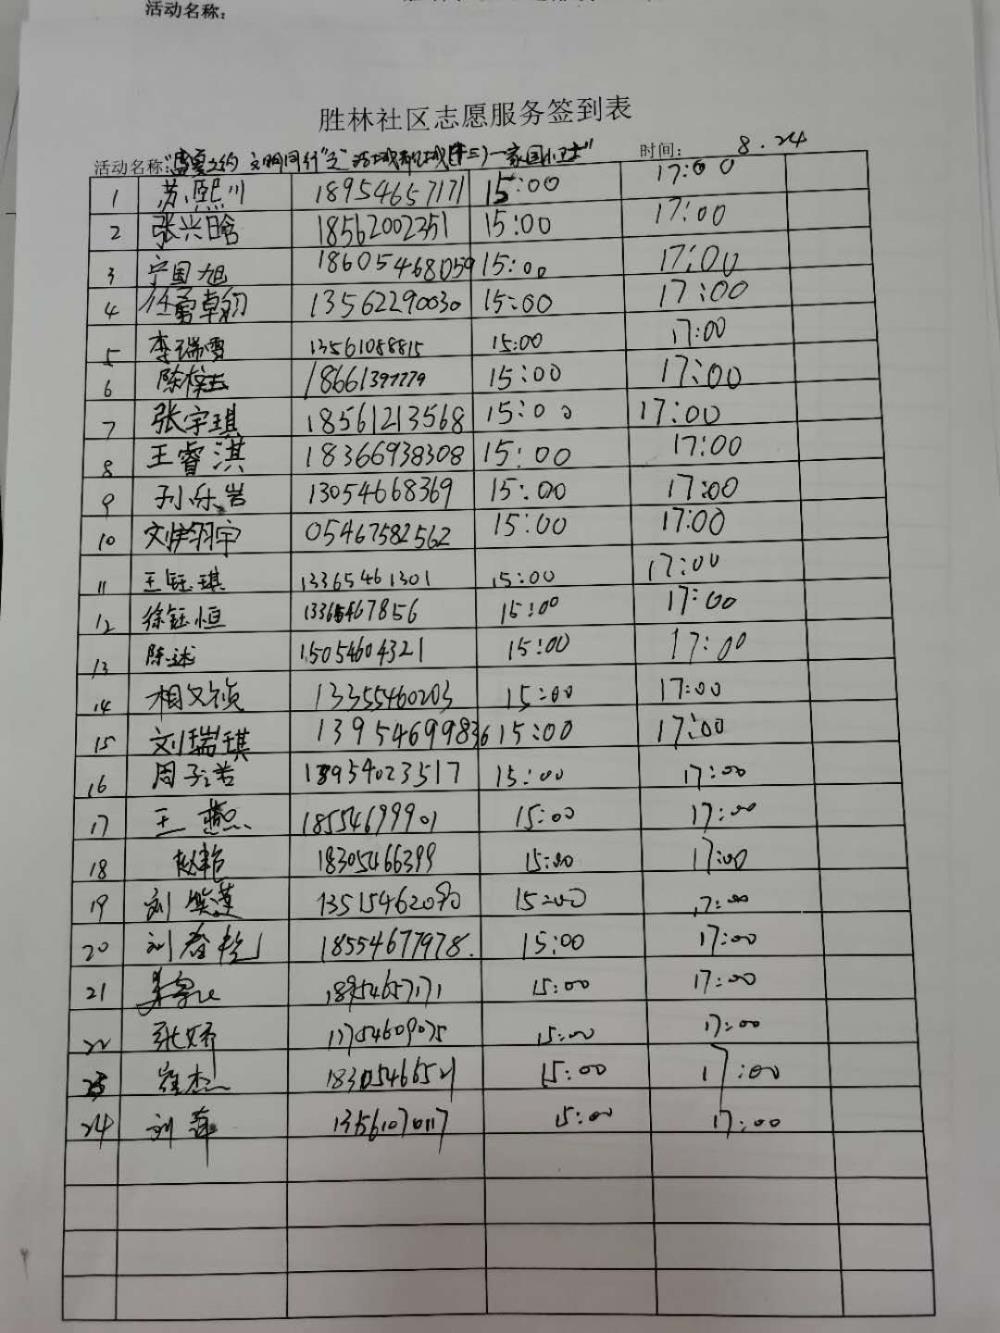 活动名称:
胜林社区志愿服务签到表
活动名称:"盛夏之约 文明同行"之 (十三)一家园小卫士" 时间: 8.24
1 苏熙川 18954657171 15:00 17:00
2 张兴晗 18562002351 15:00 17:00
3 宁国旭 18605468059 15:00 17:00
4 13562290030 15:00 17:00
5 李瑞雪 13561088815 15:00 17:00
6 15:00 17:00
7 张宇琪 18561213568 15:00 17:00
8 王睿淇 18366938308 15:00 17:00
9 孙乐岩 13054668369 15:00 17:00
10 05467582562 15:00 17:00
11 王钰琪 13365461301 15:00 17:00
12 徐钰恒 13365467856 15:00 17:00
13 15054604321 15:00 17:00
14 相文祯 13355460203 15:00 17:00
15 刘瑞琪 13954699836 15:00 17:00
16 周子诺 18954023517 15:00 17:00
17 王燕 18554699901 15:00 17:00
18 赵艳 18305466399 15:00 17:00
19 刘 13515462090 15:00 17:00
20 刘春艳 18554677978. 15:00 17:00
21 18954657171 15:00 17:00
22 张娇 17754609075 15:00 17:00
23 崔杰 18305466521 15:00 17:00
24 刘萍 13561070117 15:00 17:00